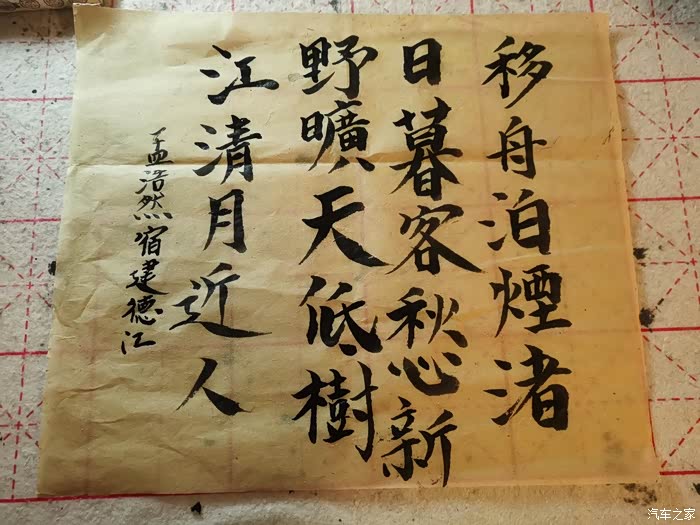 移舟泊煙渚
日暮客愁新
野曠天低樹
江清月近人
孟浩然宿建德江
汽车之家